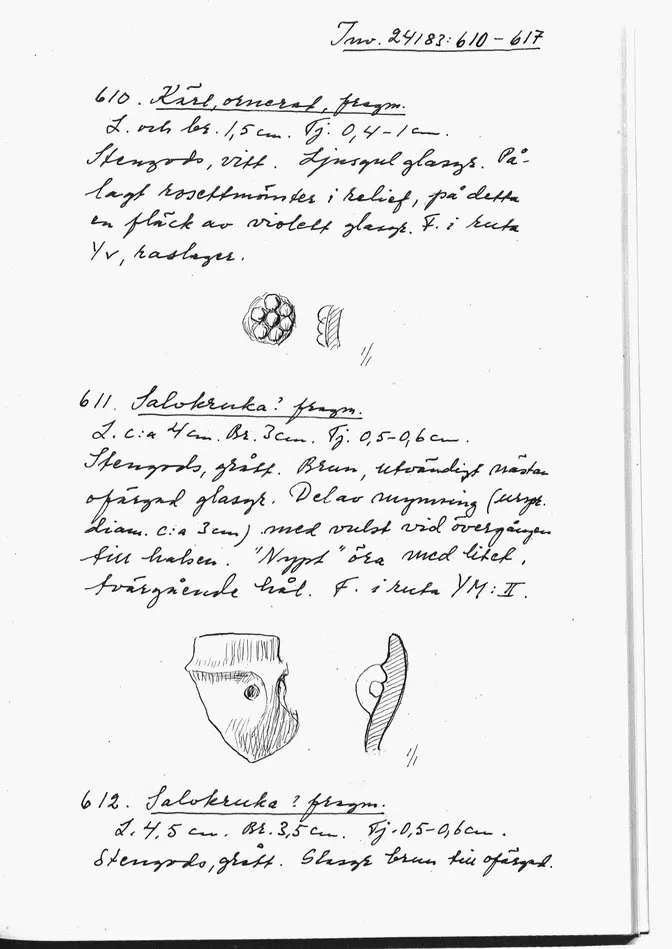 Inv. 24183:610-617
610. Kärl, ornerat, fragm.
L. och br. 1,5 cm. Tj. 0,4-1 cm.
Stengods, vitt. Ljusgul glasyr. På-
lagt rosettmönster i relief, på detta
en fläck av violett glasyr. F. i ruta
YV, raslager.
1/1
611. Salvkruka? fragm.
L. c:a 4 cm. Br. 3 cm. Tj. 0,5-0,6 cm.
Stengods, grått. Brun, utvändigt nästan
ofärgad glasyr. Del av mynning (urspr.
diam. c:a 3 cm) med vulst vid övergången
till halsen. "Nypt" öra med litet,
tvärgående hål. F. i ruta YM:II.
1/1
612. Salvkruka? fragm.
L. 4,5 cm. Br. 3,5 cm. Tj. 0,5-0,6 cm.
Stengods, grått. Glasyr brun till ofärgad.